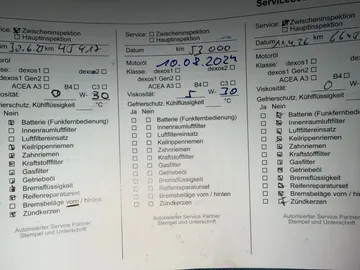 Service
Service: Zwischeninspektion
Hauptinspektion
30.6.20 km 45417
Motoröl
Klasse: dexos1 dexos2
dexos1 Gen2
ACEA A3 B4 C3
Viskosität: 0 W- 30
Gefrierschutz, Kühlflüssigkeit °C
Nein
Batterie (Funkfernbedienung)
Innenraumluftfilter
Luftfiltereinsatz
Keilrippenriemen
Zahnriemen
Kraftstofffilter
Gasfilter
Getriebeöl
Bremsflüssigkeit
Reifenreparaturset
Bremsbeläge vorn / hinten
Zündkerzen
Autorisierter Service Partner
Stempel und Unterschrift
Service: Zwischeninspektion
Hauptinspektion
Datum km 53000
Motoröl 10.08.2024
Klasse: dexos1 dexos2
dexos1 Gen2
ACEA A3 B4 C3
Viskosität: 5 W- 30
Gefrierschutz, Kühlflüssigkeit °C
Ja Nein
Batterie (Funkfernbedienung)
Innenraumluftfilter
Luftfiltereinsatz
Keilrippenriemen
Zahnriemen
Kraftstofffilter
Gasfilter
Getriebeöl
Bremsflüssigkeit
Reifenreparaturset
Bremsbeläge vorn / hinten
Zündkerzen
Autorisierter Service Partner
Stempel und Unterschrift
Service: Zwischeninspektion
Hauptinspektion
Datum km
Motoröl
Klasse: dexos1
dexos1 Gen2
ACEA A3 B4
Viskosität: 0 W-
Gefrierschutz, Kühlflüssigkeit
Ja Nein
Batterie (Funkfernbedienung)
Innenraumluftfilter
Luftfiltereinsatz
Keilrippenriemen
Zahnriemen
Kraftstofffilter
Gasfilter
Getriebeöl
Bremsflüssigkeit
Reifenreparaturset
Bremsbeläge vorn / hinten
Zündkerzen
Autorisierter Service Partner
Stempel und Unterschrift